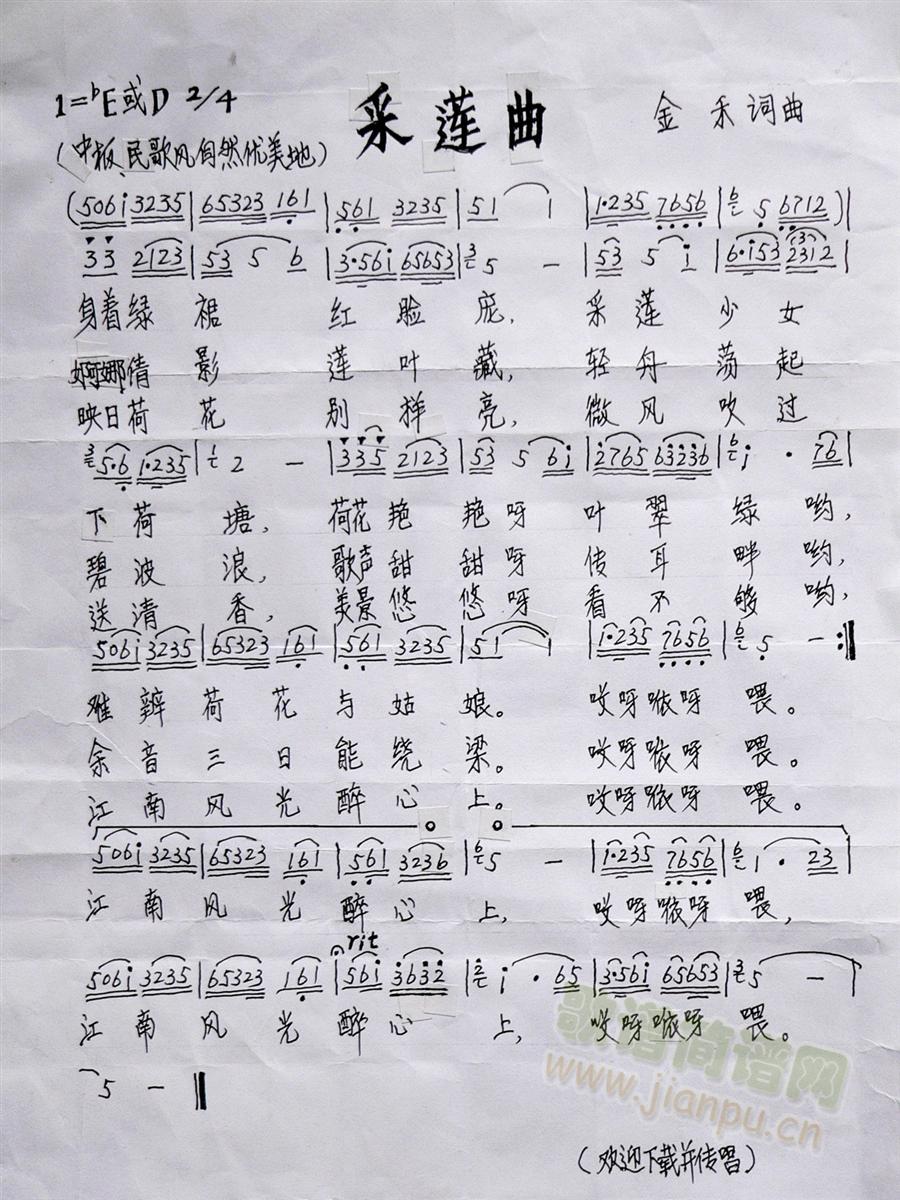 采莲曲
1=♭E或D 2/4
金禾词曲
(中板、民歌风自然优美地)
(506i 3235|65323 161|561 3235|51 1|1·235 7656|5 6712)|
33 2123|53 5 6|3·56i 65653|5 -|53 5 i|6·i53 2312|
身着绿裙 红脸庞, 采莲少女
婀娜倩影 莲叶藏, 轻舟荡起
映日荷花 别样亮, 微风吹过
5·6 1·235|2 -|335 2123|53 5 6i|2765 63236|i · 76|
下荷塘, 荷花艳艳呀 叶翠绿哟,
碧波浪, 歌声甜甜呀 传耳畔哟,
送清香, 美景悠悠呀 看不够哟,
506i 3235|65323 161|561 3235|51 1|1·235 7656|5 -:‖
难辨荷花与姑娘。 哎呀咳呀喂。
余音三日能绕梁。 哎呀咳呀喂。
江南风光醉心上。 哎呀咳呀喂。
506i 3235|65323 161|561 3236|5 -|1·235 7656|1 · 23|
江南风光醉心上, 哎呀咳呀喂,
rit
506i 3235|65323 161|56i 3632|i · 65|3·56i 65653|5 -|
江南风光醉心上, 哎呀咳呀喂。
5 - ‖
歌谱简谱网
www.jianpu.cn
(欢迎下载并传唱)